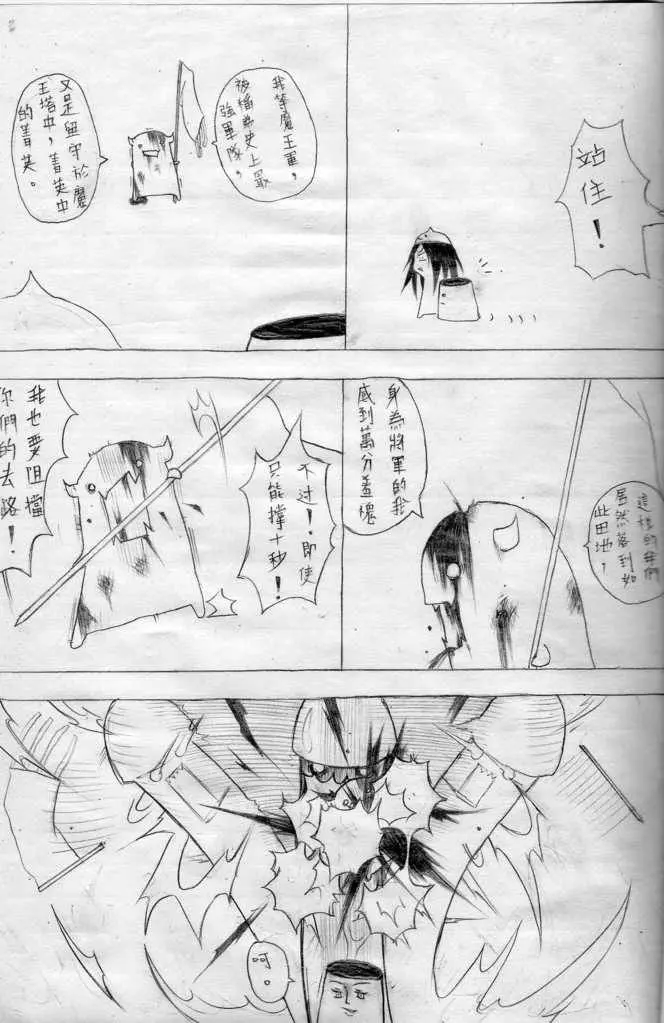 站住!
我等魔王軍,
被稱為史上最
強軍隊,
又是留守於魔
王塔中,菁英中
的菁英。
這樣的我們
居然落到如
此田地,
身為將軍的我
感到萬分羞愧
不过!即使
只能撐十秒!
我也要阻擋
你們的去路!
呵。